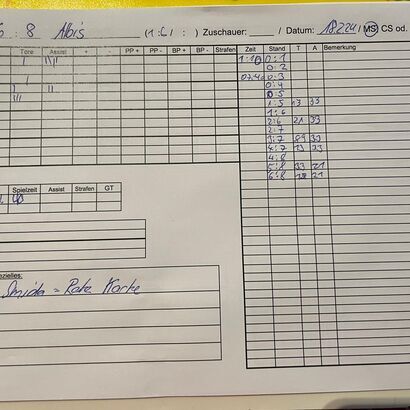 : 8 Albis (1:6/ : ) Zuschauer: / Datum: 18.2.24 / MS CS od.
Tore Assist + - PP + PP - BP + BP - Strafen Zeit Stand T A Bemerkung
0:1
0:2
0:3
0:4
0:5
1:5 13 33
1:6
2:6 21 33
2:7
3:7 89 33
4:7 23
4:8
5:8 33 21
6:8 21
Spielzeit Assist Strafen GT
ezielles:
Smida = Rote Karte